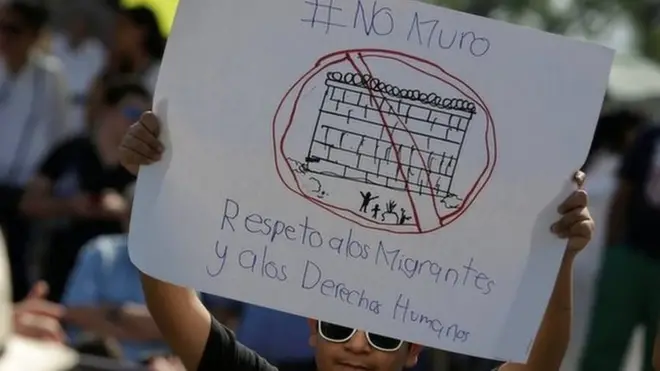 #No Muro
Respeto a los Migrantes
y a los Derechos Humanos